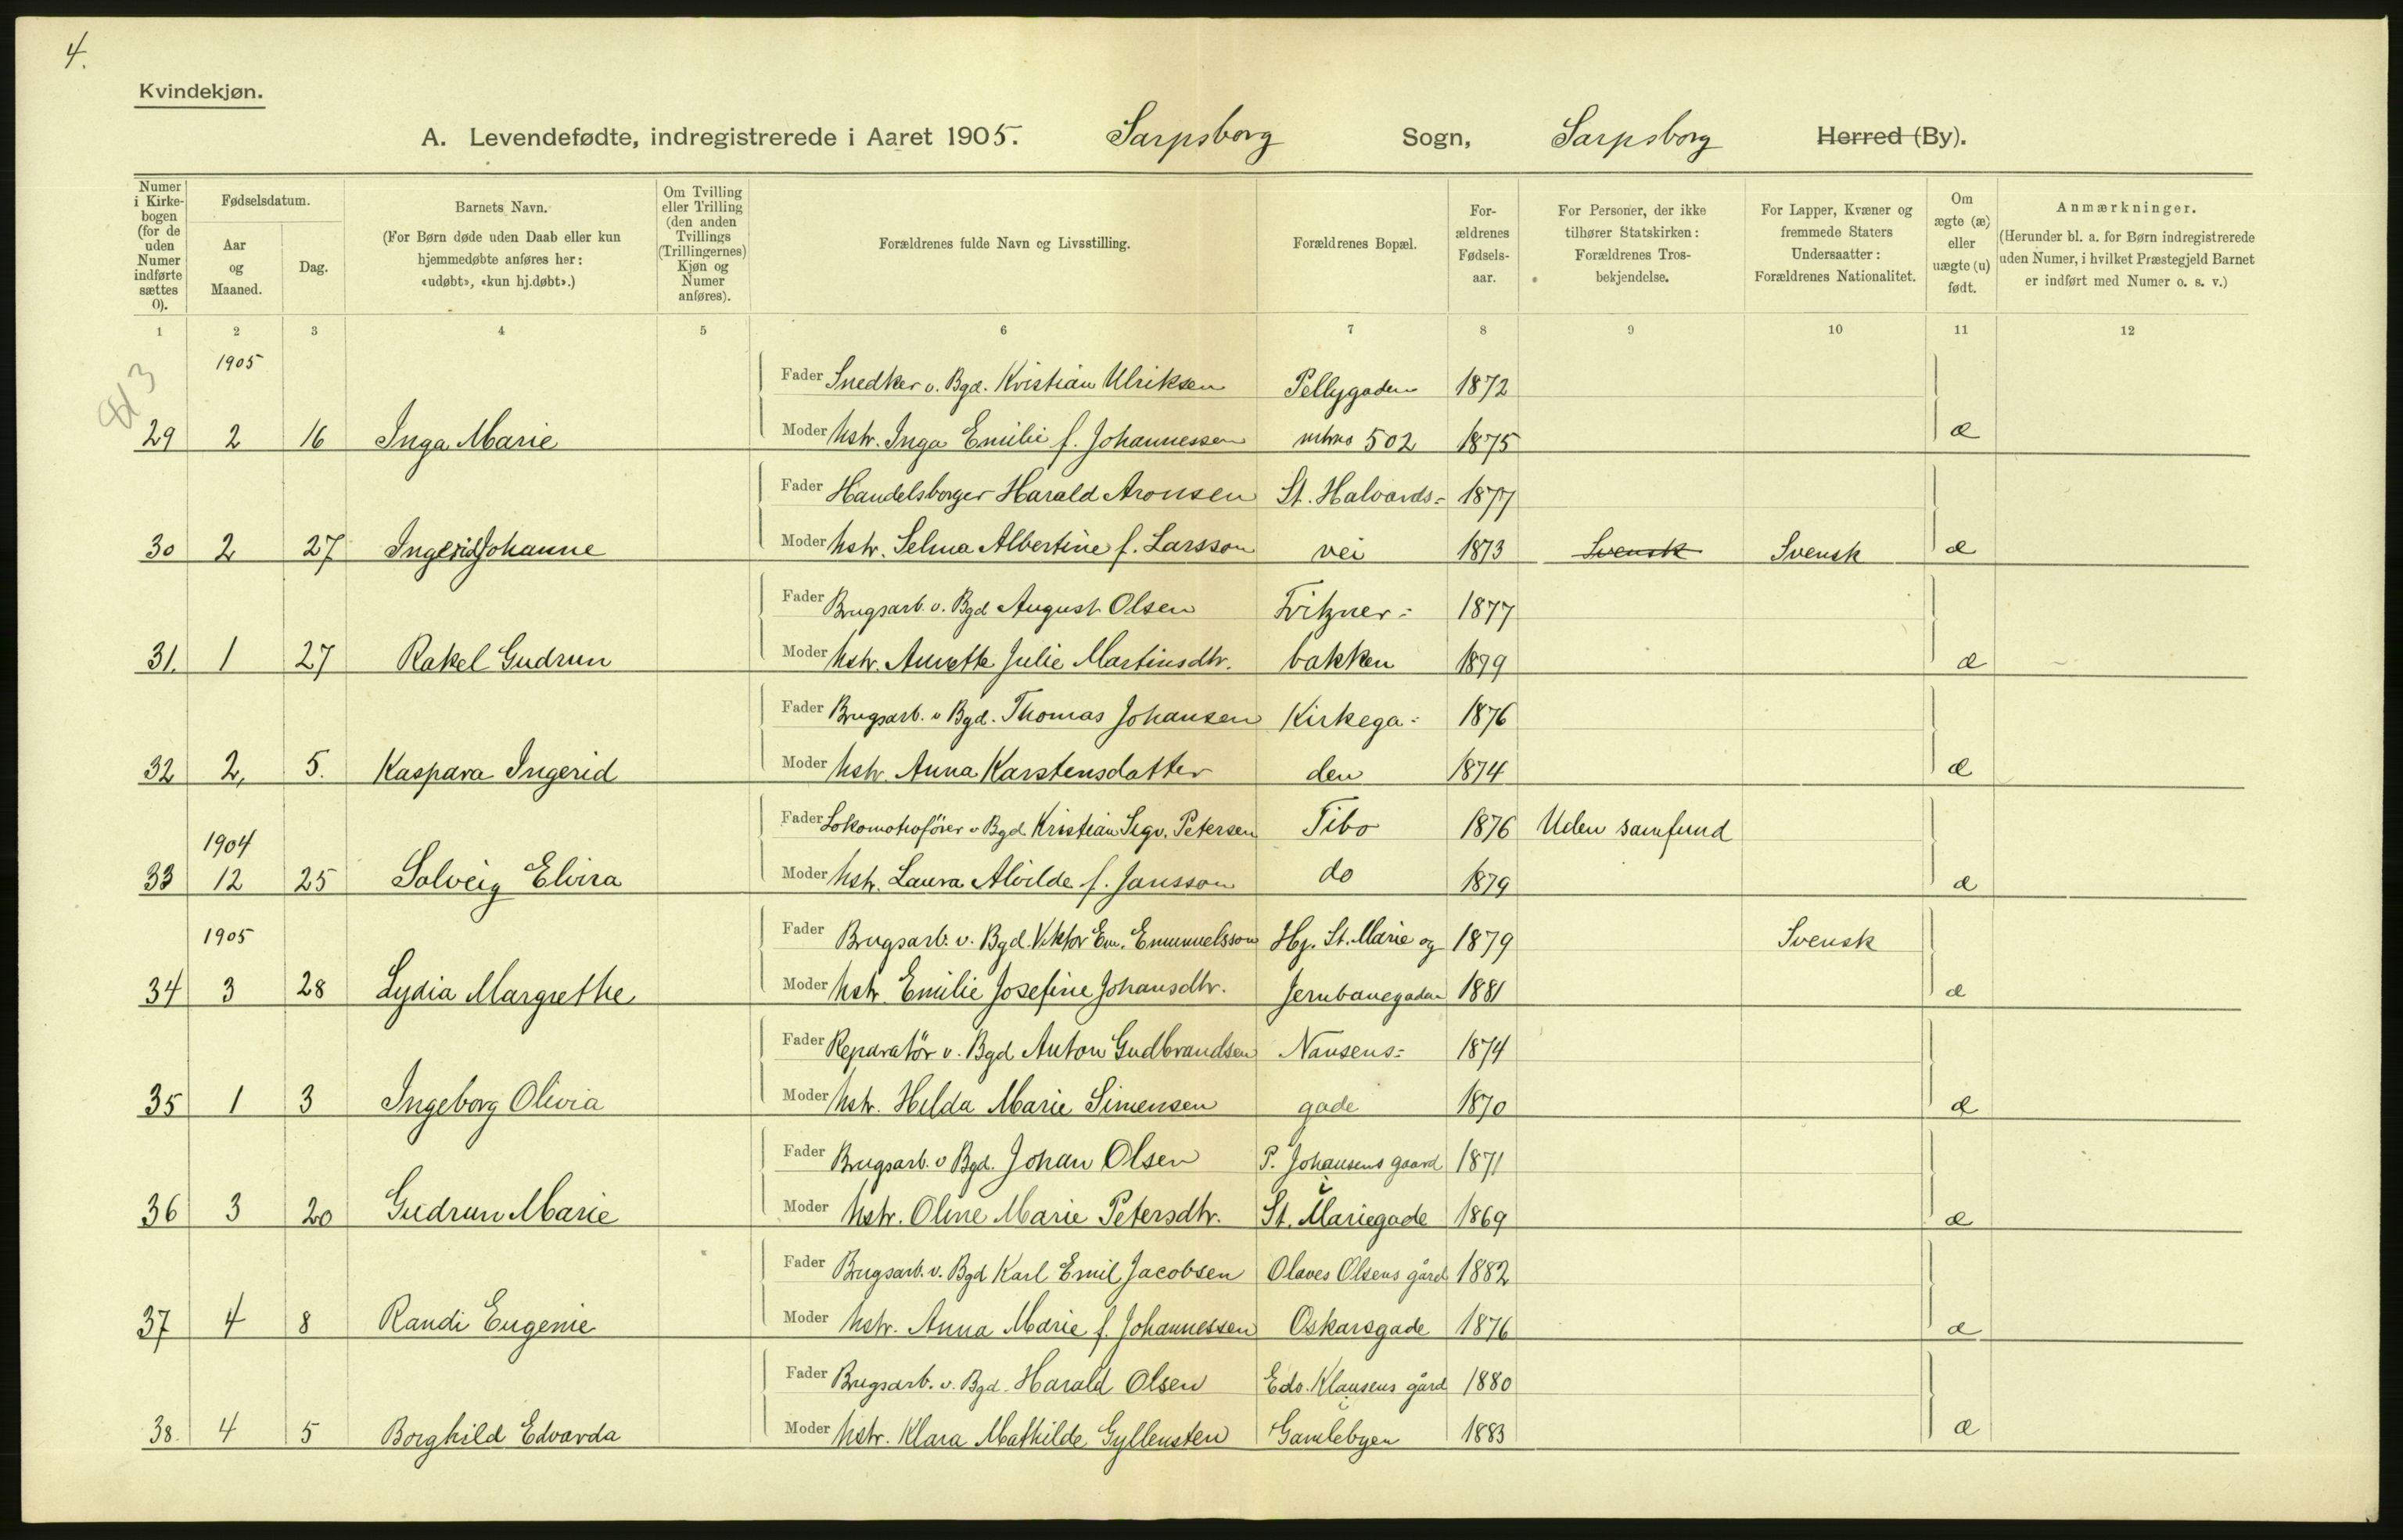 4.
Kvindekjøn.
A. Levendefødte, indregistrerede i Aaret 1905. Sarpsborg Sogn, Sarpsborg Herred (By).
Numer i Kirkebogen (for de uden Numer indførte sættes 0).
Fødselsdatum.
Aar og Maaned.
Dag.
Barnets Navn.
(For Børn døde uden Daab eller kun hjemmedøbte anføres her: «udøbt», «kun hj.døbt».)
Om Tvilling eller Trilling (den anden Tvillings (Trillingernes) Kjøn og Numer anføres).
Forældrenes fulde Navn og Livsstilling.
Forældrenes Bopæl.
For-ældrenes Fødsels-aar.
For Personer, der ikke tilhører Statskirken: Forældrenes Tros-bekjendelse.
For Lapper, Kvæner og fremmede Staters Undersaatter: Forældrenes Nationalitet.
Om ægte (æ) eller uægte (u) født.
Anmærkninger.
(Herunder bl. a. for Børn indregistrerede uden Numer, i hvilket Præstegjeld Barnet er indført med Numer o. s. v.)
1 2 3 4 5 6 7 8 9 10 11 12
1905
Fader Snedker v. Bgd. Kristian Ulriksen Pellygaden 1872
29 2 16 Inga Marie Moder hstr. Inga Emilie f. Johannessen 502 1875 æ
Fader Handelsborger Harald Aronsen St. Halvards- 1877
30 2 27 Ingerid Johanne Moder hstr. Selma Albertine f. Larsson vei 1873 Svensk Svensk æ
Fader Brugsarb. v. Bgd August Olsen Fritzner- 1877
31. 1 27 Rakel Gudrun Moder hstr. Annette Julie Martinsdtr. bakken 1879 æ
Fader Brugsarb. v Bgd. Thomas Johansen Kirkega- 1876
32 2, 5. Kaspara Ingerid Moder hstr. Anna Karstensdatter den 1874 æ
Fader Lokomotivfører v Bgd Kristian Sigv. Petersen Tibo 1876 Uden samfund
1904
33 12 25 Solveig Elvira Moder hstr. Laura Alvilde f. Jansson do 1879 æ
1905
Fader Brugsarb. v. Bgd. Viktor Em. Emanuelsson Hj. St. Marie og 1879 Svensk
34 3 28 Lydia Margrethe Moder hstr Emilie Josefine Johansdtr. Jernbanegaden 1881 æ
Fader Reparatör v. Bgd Anton Gudbrandsen Nansens- 1874
35 1 3 Ingeborg Olivia Moder hstr. Hilda Marie Simensen gade 1870 æ
Fader Brugsarb. v Bgd. Johan Olsen P. Johansens gaard 1871
i
36 3 20 Gudrun Marie Moder hstr. Oline Marie Petersdtr. St. Mariegade 1869 æ
Fader Brugsarb. v. Bgd Karl Emil Jacobsen Olaves Olsens gård 1882
37 4 8 Randi Eugenie Moder hstr. Anna Marie f. Johannessen Oskarsgade 1876 æ
Fader Brugsarb. v. Bgd. Harald Olsen Edv. Klausens gård 1880
i
38. 4 5 Borghild Edvarda Moder hstr. Klara Mathilde Gyllensten Gamlebyen 1883 æ